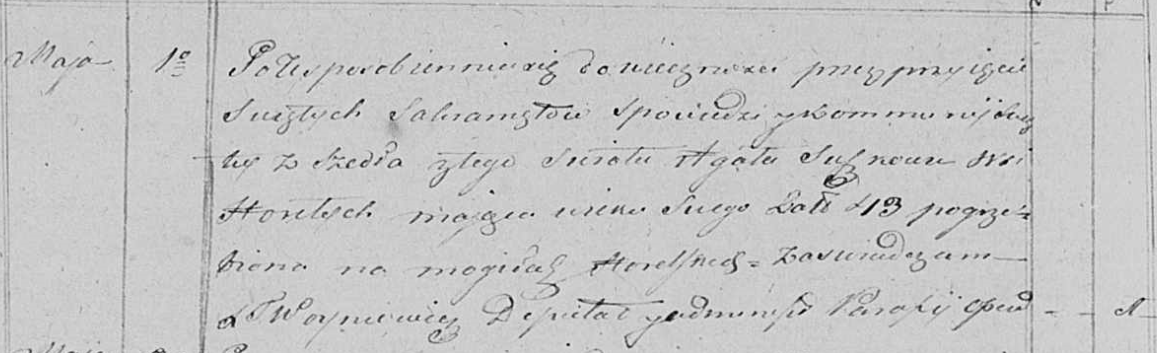 Maja 1º Po Usposobienniu się do wiecznosci przez przyięcie
Swiętych Sakramętow Spowiedzi y Kommunij Swię
tey z Szedła z tego Swiata Agata Suszkowa Wsi
Horelych maiąca wieku Swego Lat 43 pogrze-
biona na mogiłach Horelskich = Zaswiadczam
Woyniewicz Deputat y Parafij